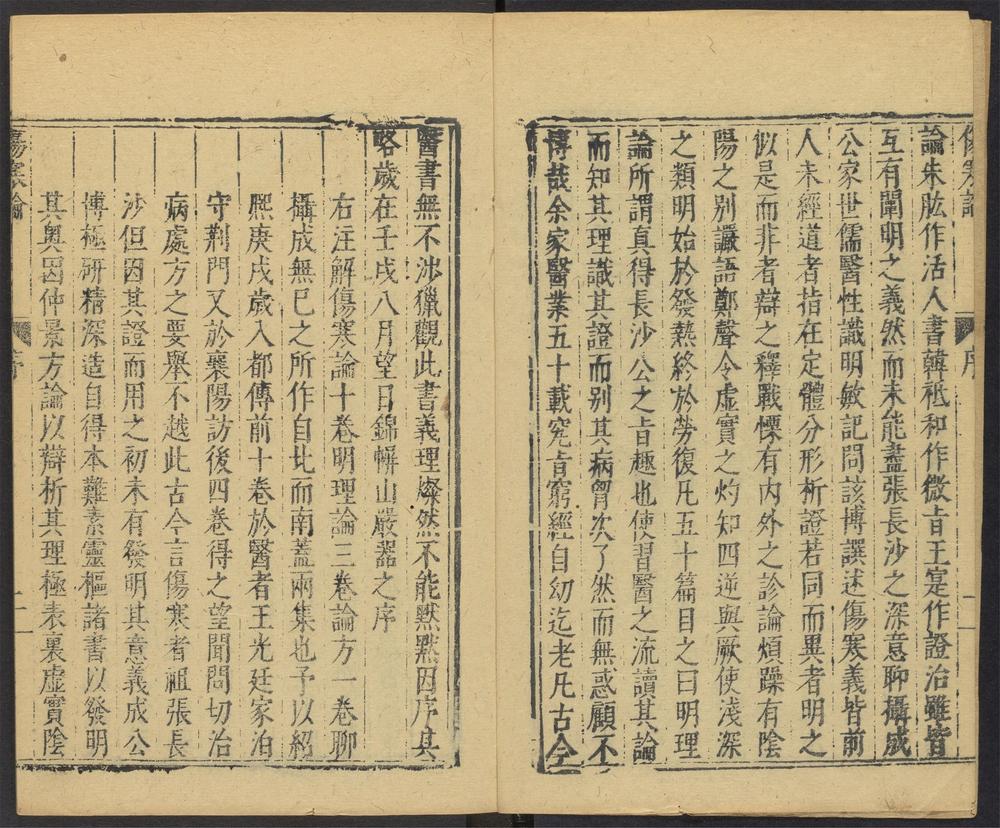 傷寒論 序 二
論朱肱作活人書韓袛和作微旨王寔作證治雖皆
互有闡明之義然而未能盡張長沙之深意聊攝成
公家世儒醫性識明敏記問該博譔述傷寒義皆前
人未經道者指在定體分形析證若同而異者明之
似是而非者辯之釋戰慄有內外之診論煩躁有陰
陽之別讝語鄭聲令虛實之灼知四逆與厥使淺深
之類明始於發熱終於勞復凡五十篇目之曰明理
論所謂真得長沙公之旨趣也使習醫之流讀其論
而知其理識其證而别其病胷次了然而無惑顧不
博哉余家醫業五十載究旨窮經自幼迄老凡古今
醫書無不涉獵觀此書義理燦然不能默默因序其
略歲在壬戌八月望日錦㡩山嚴器之序
右注解傷寒論十卷明理論三卷論方一卷聊
攝成無已之所作自北而南蓋兩集也予以紹
熙庚戌歲入都傳前十卷於醫者王光廷家洎
守荆門又於襄陽訪後四卷得之望聞問切治
病處方之要舉不越此古今言傷寒者祖張長
沙但因其證而用之初未有發明其意義成公
博極研精深造自得本難素靈樞諸書以發明
其奧因仲景方論以辯析其理極表裏虛實陰
傷寒論 序